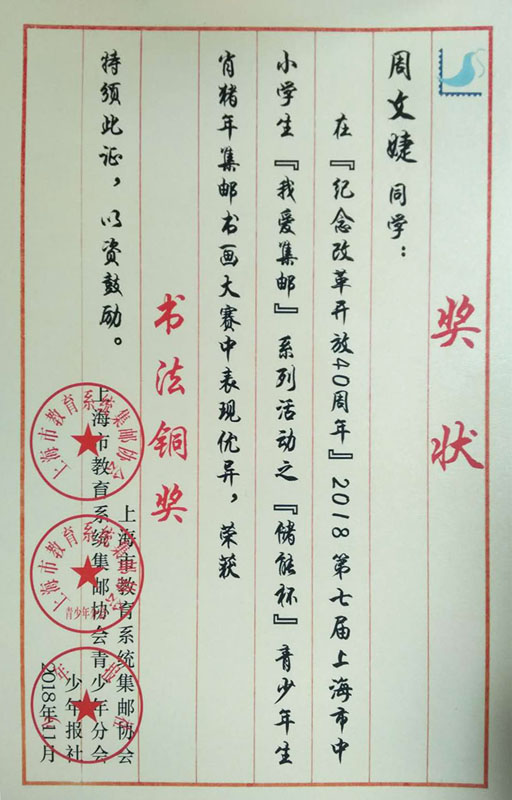 奖状
周文婕 同学：
在『纪念改革开放40周年』2018第七届上海市中
小学生『我爱集邮』系列活动之『储能杯』青少年生
肖猪年集邮书画大赛中表现优异，荣获
书法铜奖
特颁此证，以资鼓励。
上海市教育系统集邮协会
上海市教育系统集邮协会青少年分会
少年报社
2018年11月
上海市教育系统集邮协会
上海市教育系统集邮协会
青少年分会